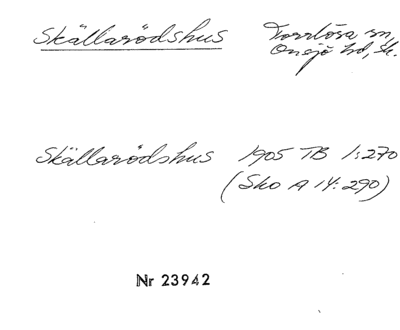 Skällarödshus Torrlösa sn,
Onsjö hd, Sk.
Skällarödshus 1905 TB 1:270
(Sko A 14:290)
Nr 23942